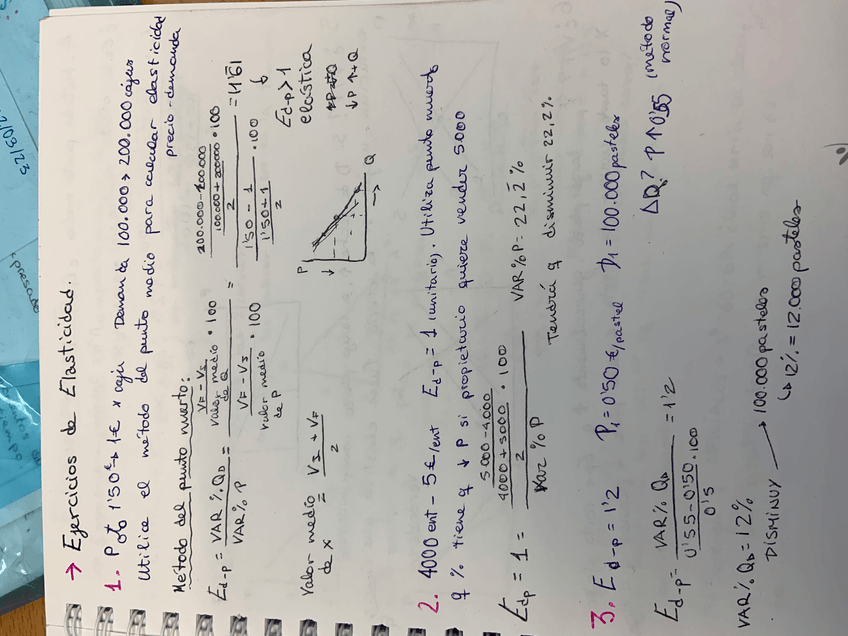 → Ejercicios de Elasticidad.
1. P 1'50€→1€ x caja Demanda 100.000→200.000 cajas
Utilice el método del punto medio para calcular elasticidad
precio-demanda
Método del punto muerto:
E d-p = VAR % Q_D / VAR % P = (VF - VS / valor medio de Q · 100) / (VF - VS / valor medio de P · 100) = (200.000 - 100.000 / (100.000 + 200000 / 2) · 100) / (1'50 - 1 / (1'50+1 / 2) · 100) = 1'61
E d-p > 1
elástica
↓P ↑+Q
Valor medio de x = VS + VF / 2
P
Q
2. 4000 ent - 5€/ent E d-p = 1 (unitario). Utiliza punto muerto
q % tiene q ↓ P si propietario quiere vender 5000
E dp = 1 = (5000-4000 / (4000 + 5000 / 2) · 100) / Var % P VAR % P = 22,2 %
Tendrá q disminuir 22,2%
3. E d-p = 1'2 P1 = 0'50 €/pastel 1 = 100.000 pasteles
ΔQ? P↑0'55 (método normal)
E d-p = VAR % Q_D / (0'55 - 0'50 / 0'5 · 100) = 1'2
VAR % Q_D = 12%
DISMINUY → 100.000 pasteles
↳ 12% = 12.000 pasteles
presado